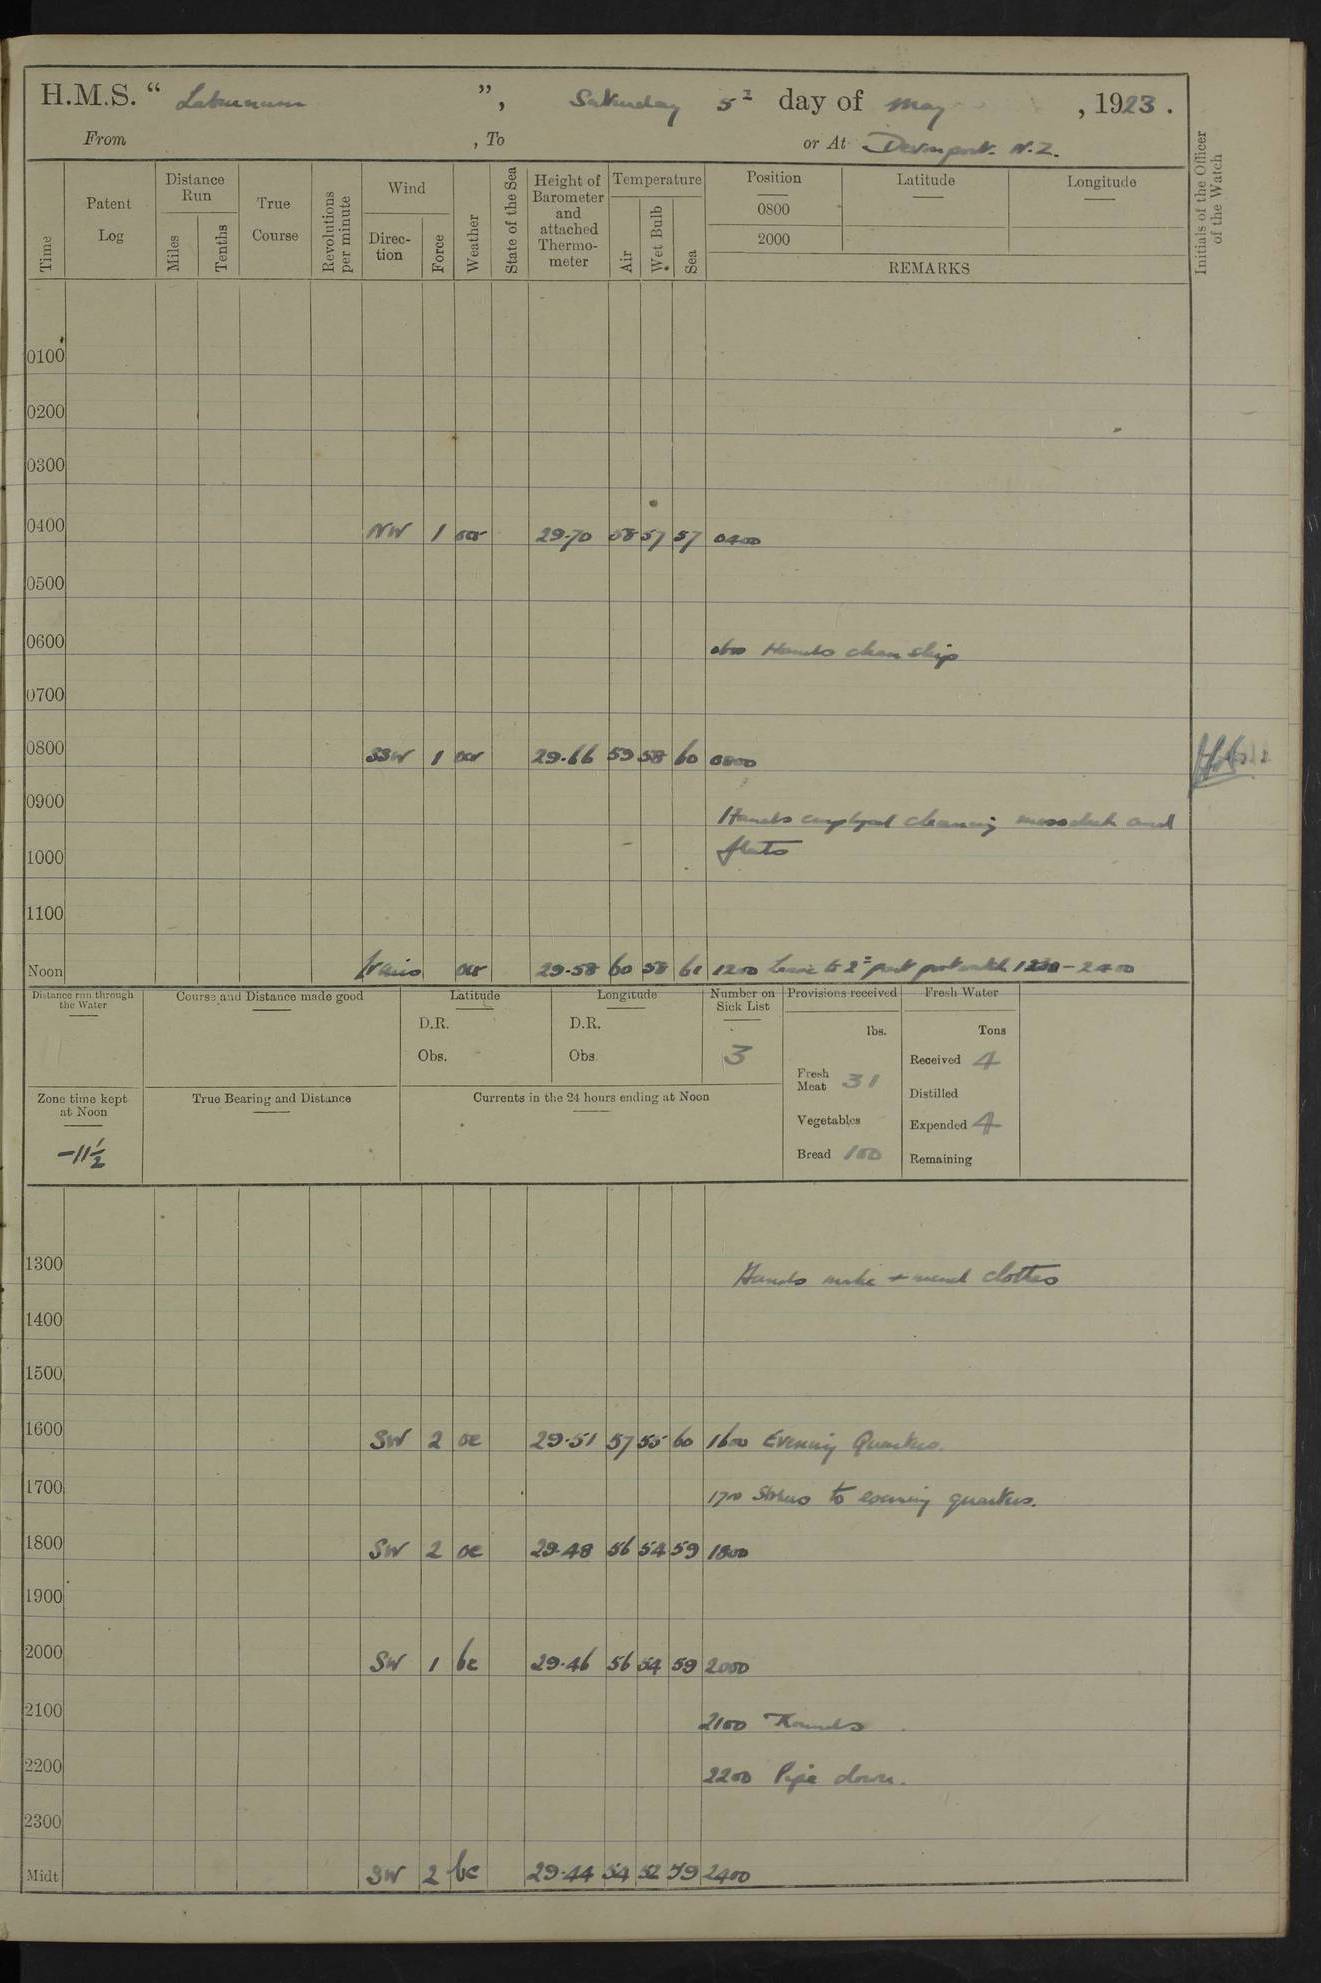 H.M.S. “ Laburnum ”, Saturday 5th day of May , 1923.
From , To or At Devonport. N.Z.
Time
Patent Log
Distance Run
Miles
Tenths
True Course
Revolutions per minute
Wind
Direction
Force
Weather
State of the Sea
Height of Barometer and attached Thermometer
Temperature
Air
Wet Bulb
Sea
Position
0800
2000
Latitude
Longitude
REMARKS
Initials of the Officer of the Watch
0100
0200
0300
0400 NW 1 or 29.70 58 57 57 0400
0500
0600 0600 Hands clean ship
0700
0800 SSW 1 or 29.66 59 58 60 0800
0900 Hands employed cleaning messdeck and
1000 flats
1100
Noon or 29.58 60 58 61 1200 Leave to 2nd part port watch 1230 - 2400
Distance run through the Water
Course and Distance made good
Latitude
D.R.
Obs.
Longitude
D.R.
Obs.
Number on Sick List
3
Provisions received
lbs.
Fresh Meat 31
Vegetables
Bread 100
Fresh Water
Tons
Received 4
Distilled
Expended 4
Remaining
Zone time kept at Noon
-11½
True Bearing and Distance
Currents in the 24 hours ending at Noon
1300 Hands make + mend clothes
1400
1500
1600 SW 2 oc 29.51 57 55 60 1600 Evening Quarters.
1700 1700 Stokers to evening quarters.
1800 SW 2 oc 29.48 56 54 59 1800
1900
2000 SW 1 bc 29.46 56 54 59 2000
2100 2100 Rounds
2200 2200 Pipe down.
2300
Midt SW 2 bc 29.44 54 52 59 2400